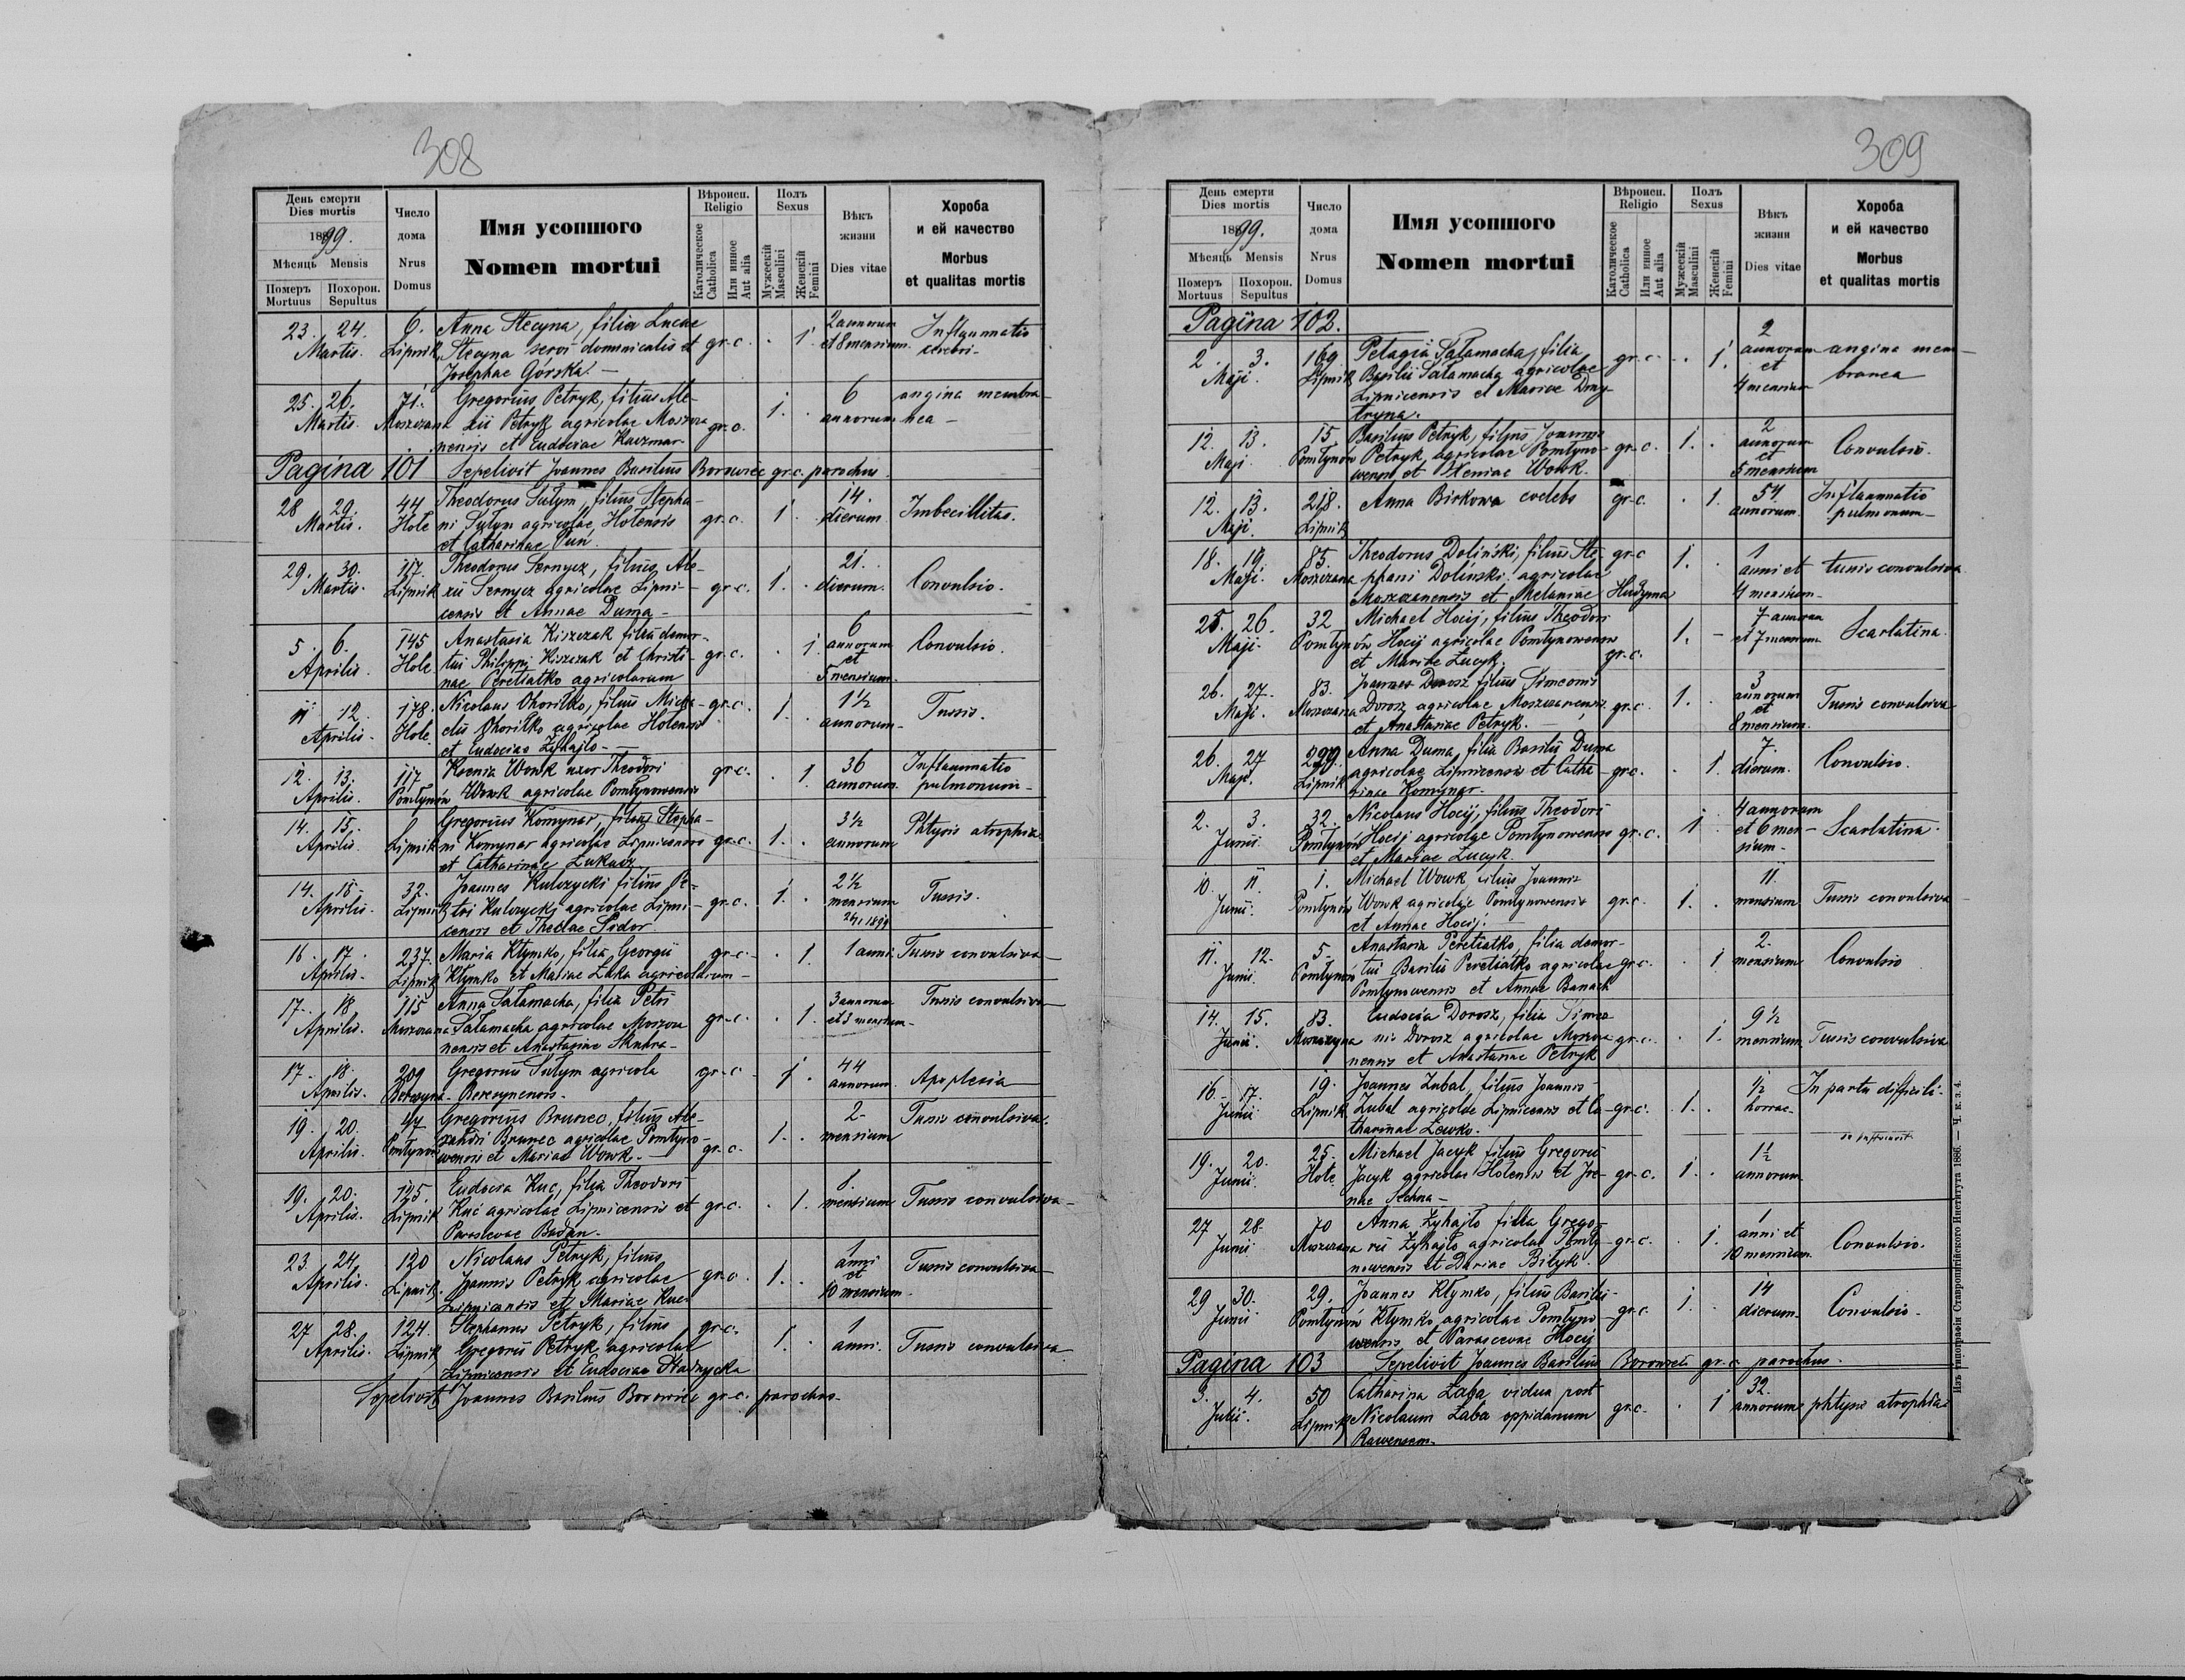 308
День смерти
Dies mortis
1899.
Мѣсяць Mensis
Померъ Mortuus
Похорон. Sepultus
Число дома
Nrus Domus
Имя усопшого
Nomen mortui
Вѣроисп.
Religio
Католическое Catholica
Или инное Aut alia
Полъ
Sexus
Мужескій Masculini
Женскій Femini
Вѣкъ жизни
Dies vitae
Хороба
и ей качество
Morbus
et qualitas mortis
23. 24. 6. Anna Stecyna, filia Lucae 2 annorum Inflammatio
Martis. Lipnik Stecyna servi dominicalis et gr. c. . 1. et 8 mensium cerebri
Josephae Górska. —
25. 26. 71. Gregorius Petryk, filius Ale- 6 angina membra-
Martis. Moszczana xii Petryk agricolae Moszcza gr. c. 1. . annorum nea —
nensis et Eudociae Kaczmar
Pagina 101 Sepelivit Joannes Basilius Borowiec gr. c. parochus.
28 29. 44 Theodorus Sułym, filius Stepha- 14.
Martis. Hole ni Sułym agricolae Holensis gr. c. 1 . dierum Imbecillitas.
et Catharinae Puń.
29. 30. 117. Theodorus Sernycz, filius Ale- 21.
Martis. Lipnik xii Sernycz agricolae Lipni- gr. c. 1. . dierum. Convulsio.
censis et Annae Duma —
5. 6. 145 Anastasia Kiszczak filia demor- 6
Aprilis. Hole. tui Philippi Kiszczak et Christi- gr. c. . 1. annorum et Convulsio.
nae Peretiatko agricolarum 5 mensium.
11 12. 178. Nicolaus Ohoriłko, filius Micha- gr. c. 1. . 1½
Aprilis. Hole. elis Ohoriłko agricolae Holensis annorum Tussis.
et Eudociae Żyhajło —
12. 13. 117 Ksenia Wowk uxor Theodori gr. c. . 1 36 Inflammatio
Aprilis. Pomłynów Wowk agricolae Pomłynowensis annorum pulmonum —
14. 15. Gregorius Komynar, filius Stepha- 3½
Aprilis. Lipnik ni Komynar agricolae Lipnicensis gr. c. 1. . annorum Phtysis atrophia
et Catharinae Łukacz
14. 15. 32. Joannes Kulczycki filius Pe- 2½
Aprilis. Lipnik tri Kulczycki agricolae Lipni- gr. c. 1. . mensium Tussis.
censis et Theclae Sidor.
16. 17. 237. Maria Kłymko, filia Georgii gr. c. . 1. 1 anni Tussis convulsiva
Aprilis. Lipnik Kłymko et Mariae Łaka agricolarum —
17. 18 115 Anna Sałamacha, filia Petri 3 annorum Tussis convulsiva
Aprilis. Moszczana Sałamacha agricolae Moszcza gr. c. . 1. et 3 mensium.
nensis et Anastasiae Skubra —
17. 18. 209 Gregorius Sułym agricola gr. c. 1. 44
Aprilis. Berezyna. Berezynensis. annorum. Apoplexia
19. 20. 47 Gregorius Brunec, filius Ale- 2 Tussis convulsiva.
Aprilis. Pomłynów xandri Brunec agricolae Pomłyno- gr. c. 1. . mensium
wensis et Mariae Wowk. —
19. 20. 125. Eudocia Kuc, filia Theodori 1.
Aprilis. Lipnik Kuc agricolae Lipnicensis et gr. c. . 1. mensium Tussis convulsiva —
Parascevae Badan.
23. 24. 120 Nicolaus Petryk, filius 1
Aprilis. Lipnik. Joannis Petryk agricolae gr. c. 1. . anni et Tussis convulsiva
Lipnicensis et Mariae Kuc 10 mensium.
27 28. 124. Stephanus Petryk, filius gr. c. 1
Aprilis. Lipnik Gregorii Petryk agricolae 1. . anni. Tussis convulsiva
Lipnicensis et Eudociae Hadnycka
Sepelivit Joannes Basilius Borowiec gr. c. parochus.
309
День смерти
Dies mortis
1899.
Мѣсяць Mensis
Померъ Mortuus
Похорон. Sepultus
Число дома
Nrus Domus
Имя усопшого
Nomen mortui
Вѣроисп.
Religio
Католическое Catholica
Или инное Aut alia
Полъ
Sexus
Мужескій Masculini
Женскій Femini
Вѣкъ жизни
Dies vitae
Хороба
и ей качество
Morbus
et qualitas mortis
Pagina 102.
2. 3. 169 Pelagia Sałamacha, filia 2 annorum angina mem-
Maji. Lipnik Basilii Sałamacha agricolae gr. c. . 1. et branea
Lipnicensis et Mariae Dmy- 4 mensium
tryna.
12. 13. 15. Basilius Petryk, filius Joannis 2
Maji. Pomłynów Petryk agricolae Pomłyno- gr. c. 1. . annorum et Convulsio.
wensis et Xeniae Wowk. 5 mensium
12. 13. 218. Anna Birkowa coelebs gr. c. . 1. 54 Inflammatio
Maji. Lipnik annorum. pulmonum —
18. 19. 85. Theodorus Doliński, filius Ste- gr. c 1. . 1
Maji. Moszczana phani Doliński agricolae anni et tussis convulsiva
Moszczanensis et Melaniae Hudyma 4 mensium.
25. 26. 32 Michael Hocij, filius Theodori 7 annorum
Maji. Pomłynów Hocij agricolae Pomłynowensis gr. c. 1. — et 7 mensium Scarlatina.
et Mariae Łucyk.
26. 27. 83. Joannes Dorosz filius Simeonis 3
Maji. Moszczana Dorosz agricolae Moszczanensis gr. c. 1. . annorum et Tussis convulsiva
et Anastasiae Petryk. — 8 mensium.
26. 27 299. Anna Duma, filia Basilii Duma 7.
Maji. Lipnik agricolae Lipnicensis et Catha- gr. c. . 1. dierum. Convulsio.
rinae Komynar.
2. 3. 32. Nicolaus Hocij, filius Theodori 4 annorum
Junii. Pomłynów Hocij agricolae Pomłynowensis gr. c. 1 . et 6 men- Scarlatina.
et Mariae Łucyk. sium —
10. 11. 1. Michael Wowk filius Joannis 11.
Junii. Pomłynów Wowk agricolae Pomłynowensis gr. c. 1. . mensium Tussis convulsiva
et Annae Hocij.
11. 12. 5. Anastasia Peretiatko, filia demor- 2.
Junii. Pomłynów tui Basilii Peretiatko agricolae gr. c. . 1 mensium Convulsio
Pomłynowensis et Annae Banach
14. 15. 83. Eudocia Dorosz, filia Simeo 9½
Junii. Moszczana nis Dorosz agricolae Moszcza gr. c. . 1. mensium Tussis convulsiva
nensis et Anastasiae Petryk
16. 17. 19. Joannes Zubal, filius Joannis ½ In partu difficili.
Junii. Lipnik Zubal agricolae Lipnicensis et Ca- gr. c. 1. . horae
tharinae Lewko.
19. 20. 25. Michael Jacyk filius Gregorii 1½
Junii. Hole Jacyk agricolae Holensis et Ire- gr. c. 1. . annorum
nae Sechna —
27 28. 70 Anna Żyhajło filia Grego- 1
Junii Moszczana rii Żyhajło agricolae Pomły- gr. c. . 1. anni et Convulsio.
nowensis et Dariae Biłyk. 10 mensium
29 30. 29. Joannes Kłymko, filius Basilii 14
Junii Pomłynów Kłymko agricolae Pomłyno gr. c. 1. . dierum. Convulsio.
wensis et Parascevae Hocij
Pagina 103 Sepelivit Joannes Basilius Borowiec gr. c. parochus.
3. 4. 50 Catharina Łaba vidua post 32.
Julii. Lipnik Nicolaum Łaba oppidanum gr. c. . 1 annorum phtysis atrophia
Rawensem.
Изъ типографіи Ставропигійского Института 1886. — Ч. к. з. 4.